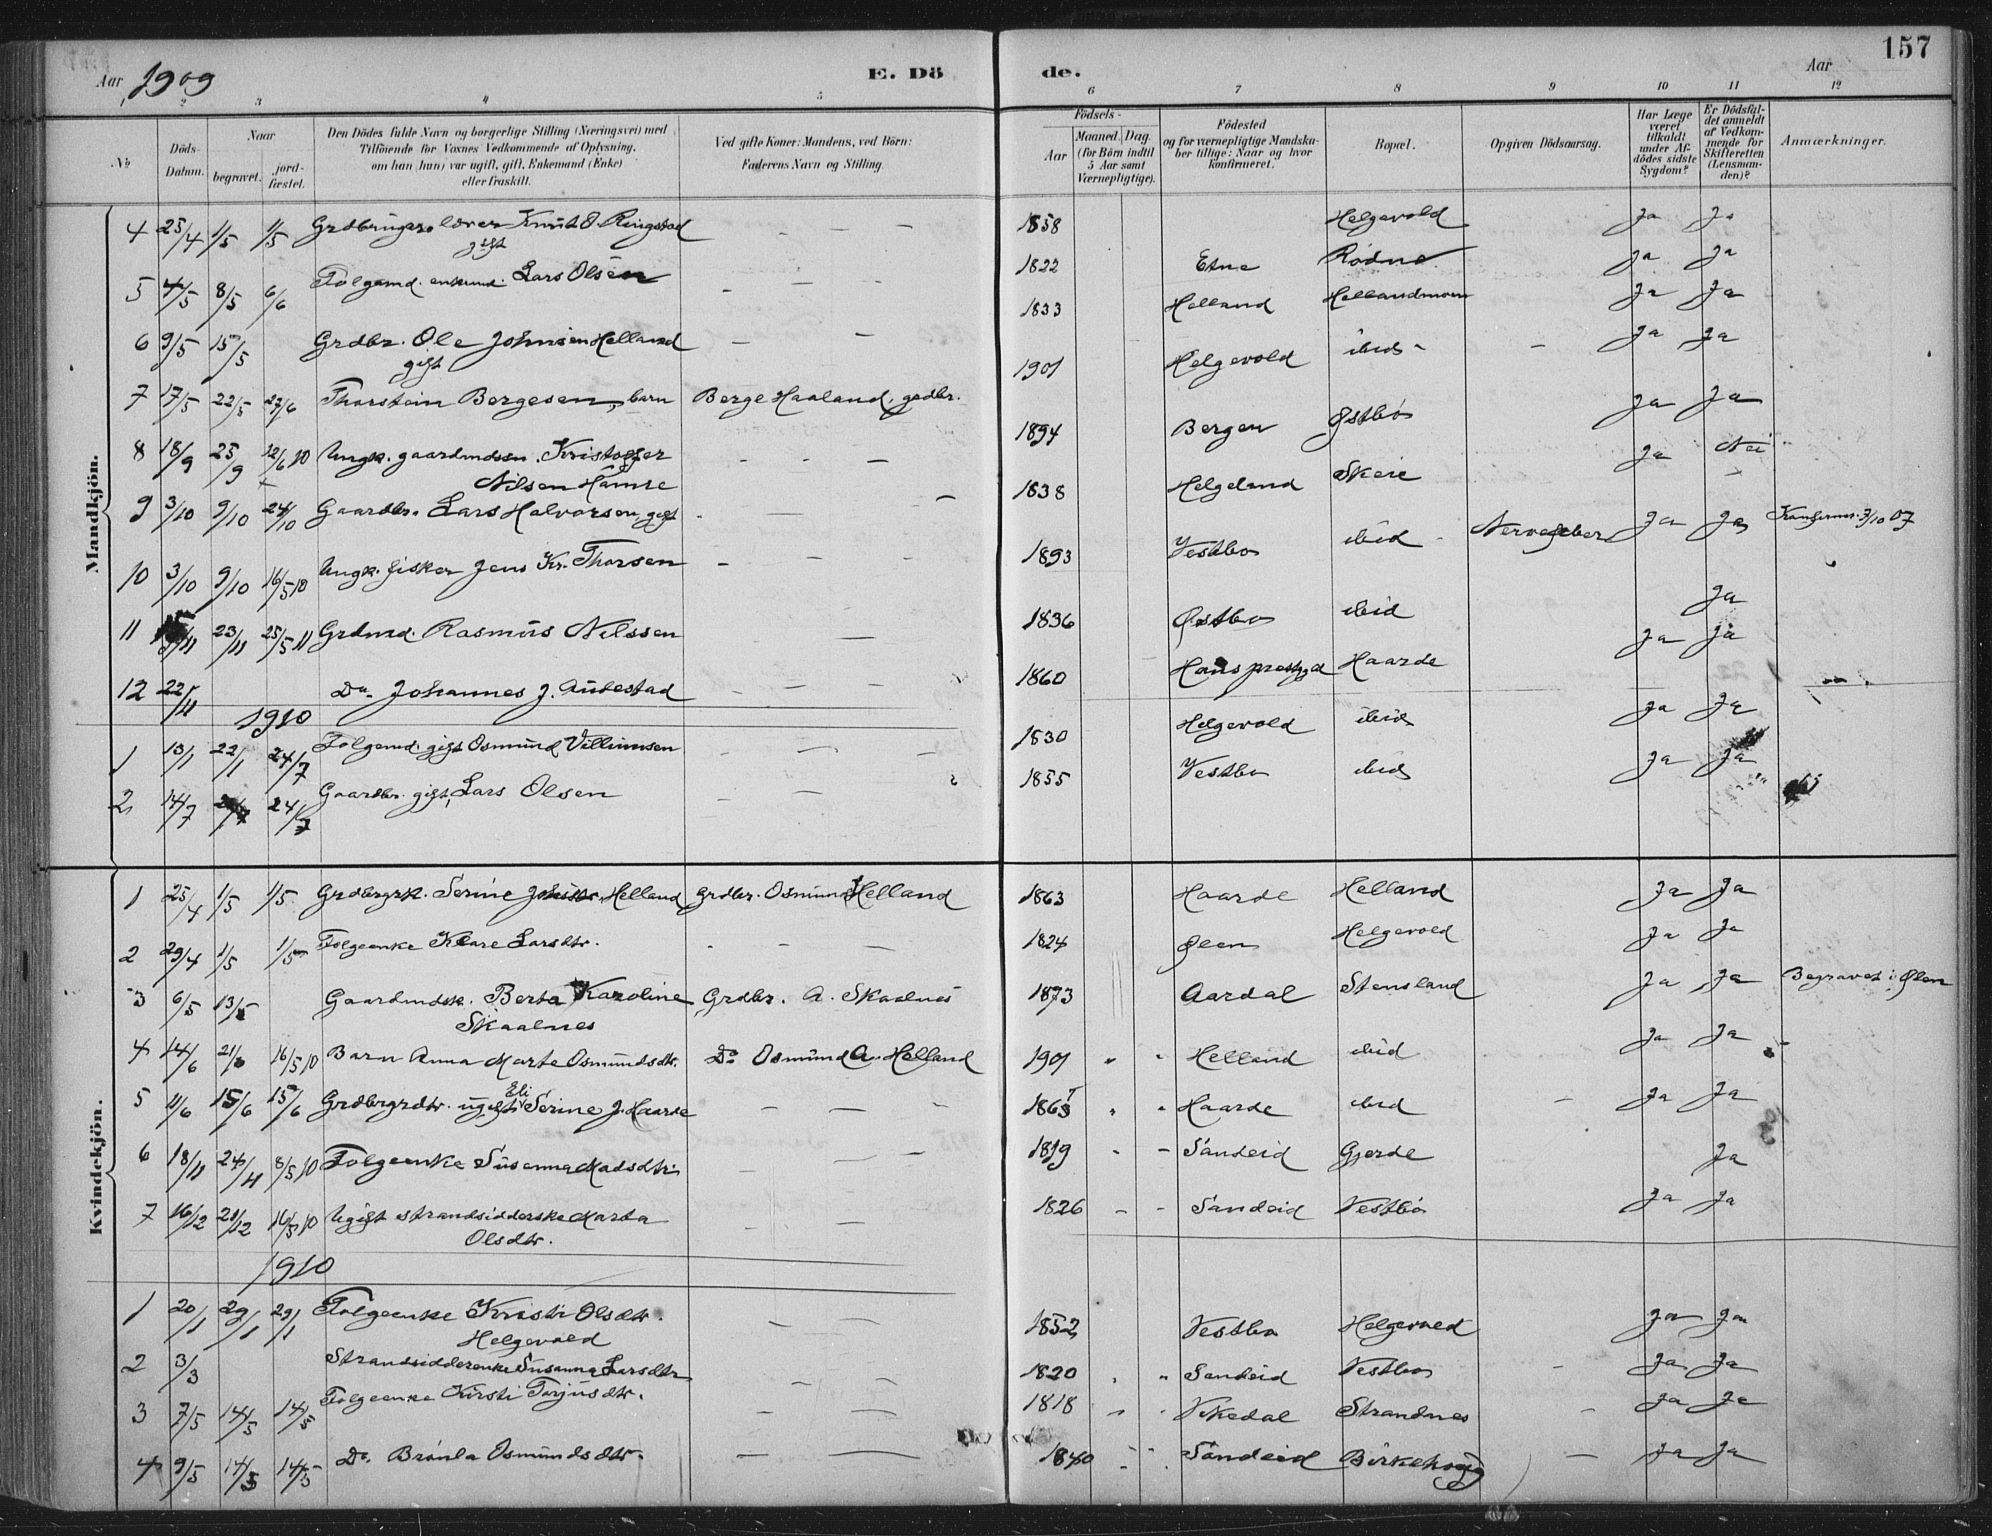 Aar 1909 E. Döde. Aar 157
1 2 3 4 5 6 7 8 9 10 11 12
No
Döds-Datum.
Naar
begravet.
jord-fæstet.
Den Dödes fulde Navn og borgerlige Stilling (Næringsvei) med
Tilföiende for Voxnes Vedkommende af Oplysning,
om han (hun) var ugift, gift, Enkemand (Enke)
eller fraskilt.
Ved gifte Koner: Mandens, ved Börn:
Faderens Navn og Stilling.
Födsels-
Aar
Maaned. Dag.
(for Börn indtil
5 Aar samt
Værnepligtige).
Födested
og for værnepligtige Mandska-
ber tillige: Naar og hvor
konfirmeret.
Bopæl.
Opgiven Dödsaarsag.
Har Læge
været
tilkaldt
under Af-
dödes sidste
Sygdom?
Er Dödsfal-
det anmeldt
af Vedkom-
mende for
Skifteretten
(Lensman-
den)?
Anmærkninger.
Mandkjön.
4 25/4 1/5 1/5 Grdbruger lærer Knut O. Ringstad gift - - - 1858 Helgevold Ja Ja
5 4/5 8/5 6/6 Folgemd. enkemd. Lars Olsen - - - 1822 Etne Rødne Ja Ja
6 9/5 15/5 Grdbr. Ole Johnsen Helland gift - - 1833 Helland Hellandmoen Ja Ja
7 17/5 22/5 27/6 Thorstein Bergesen, barn Berge Haaland, grdbr. 1901 Helgevold ibid - Ja Ja
8 18/9 25/9 12/6 10 Ungk. gaardmdssn. Kristoffer Nilsen Hamre - - - 1894 Bergen Østbø Ja Ja
9 3/10 9/10 24/10 Gaardbr. Lars Halvorsen, gift - - 1838 Helgeland Skeie Ja Nei
10 3/10 9/10 16/5 10 Ungk. fisker Jens Kr. Thorsen - - 1893 Vestbø ibid Nervefeber Ja Ja 3/10 07
11 23/11 25/5 11 Grdmd. Rasmus Nilssen - 1836 Østbø ibid Ja
12 22/11 Do. Johannes J. - - - 1860 Haarde Ja Ja
1910
1 13/1 22/1 24/7 Folgemd. gift Osmund Villumsen - - - 1830 Helgevold ibid Ja Ja
2 14/7 24/7 Gaardbr. gift, Lars Olsen - - 1855 Vestbø ibid Ja Ja
Kvindekjön.
1 25/4 1/5 1/5 Grdbrgrk. Serine Johnsdtr. Helland Grdbr. Osmund Helland 1863 Haarde Helland Ja Ja
2 29/4 1/5 1/5 Folgeenke Klare Larsdtr. - - - 1824 Ølen Helgevold Ja Ja
3 6/5 13/5 Gaardmdsk. Berta Karoline Skaalnes Grdbr. A. Skaalnes 1873 Aardal Stensland Ja Ja Begravet i Ølen
4 14/6 21/6 16/5 10 Barn Anna Marte Osmundsdtr. Do. Osmund A. Helland 1901 Helland ibid Ja Ja
5 11/6 15/6 15/6 Grdbrgrdtr. ugift Eli Serine J. Haarde - - - Haarde ibid - Ja Ja
6 18/11 24/11 8/5 10 Folgeenke Susanna Madsdtr. - - - 1819 Sandeid Gjerde Ja
7 16/12 21/12 16/5 10 Ugift strandsidderske Marta Olsdtr. - - 1826 Sandeid Vestbø Ja Ja
1910
1 20/1 29/1 29/1 Folgeenke Kristi Olsdtr. Helgevold - - - 1852 Vestbø Helgevold Ja Ja
2 3/3 Strandsidderenke Susanna Larsdtr - - - 1820 Sandeid Vestbø - Ja Ja
3 7/5 14/5 14/5 Folgeenke Kirsti Torjusdtr. - - - 1818 Vikedal Strandnes - Ja Ja
4 9/5 14/5 14/5 Do. Brønla Osmundsdtr. - - - 1840 Sandeid Birkehaug - Ja Ja